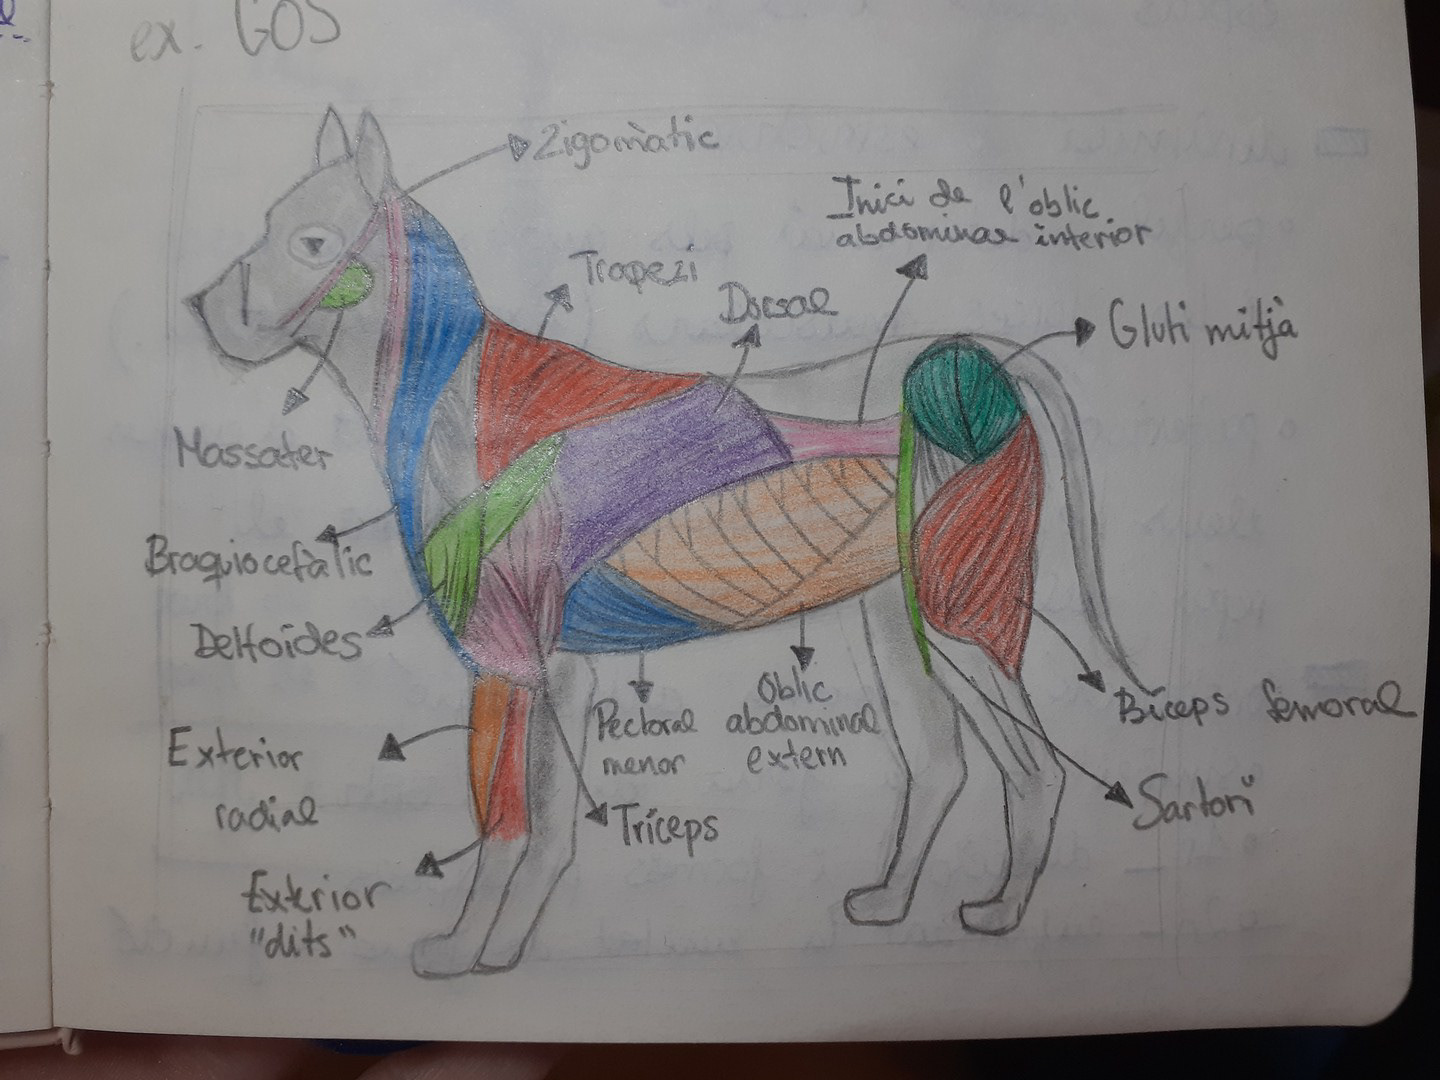 ex. GOS
Zigomàtic
Inici de l'oblic
abdominal interior
Trapezi
Dorsal
Gluti mitjà
Massater
Braquiocefàlic
Deltoides
Pectoral
menor
Oblic
abdominal
extern
Bíceps femoral
Exterior
radial
Tríceps
Sartori
Exterior
"dits"